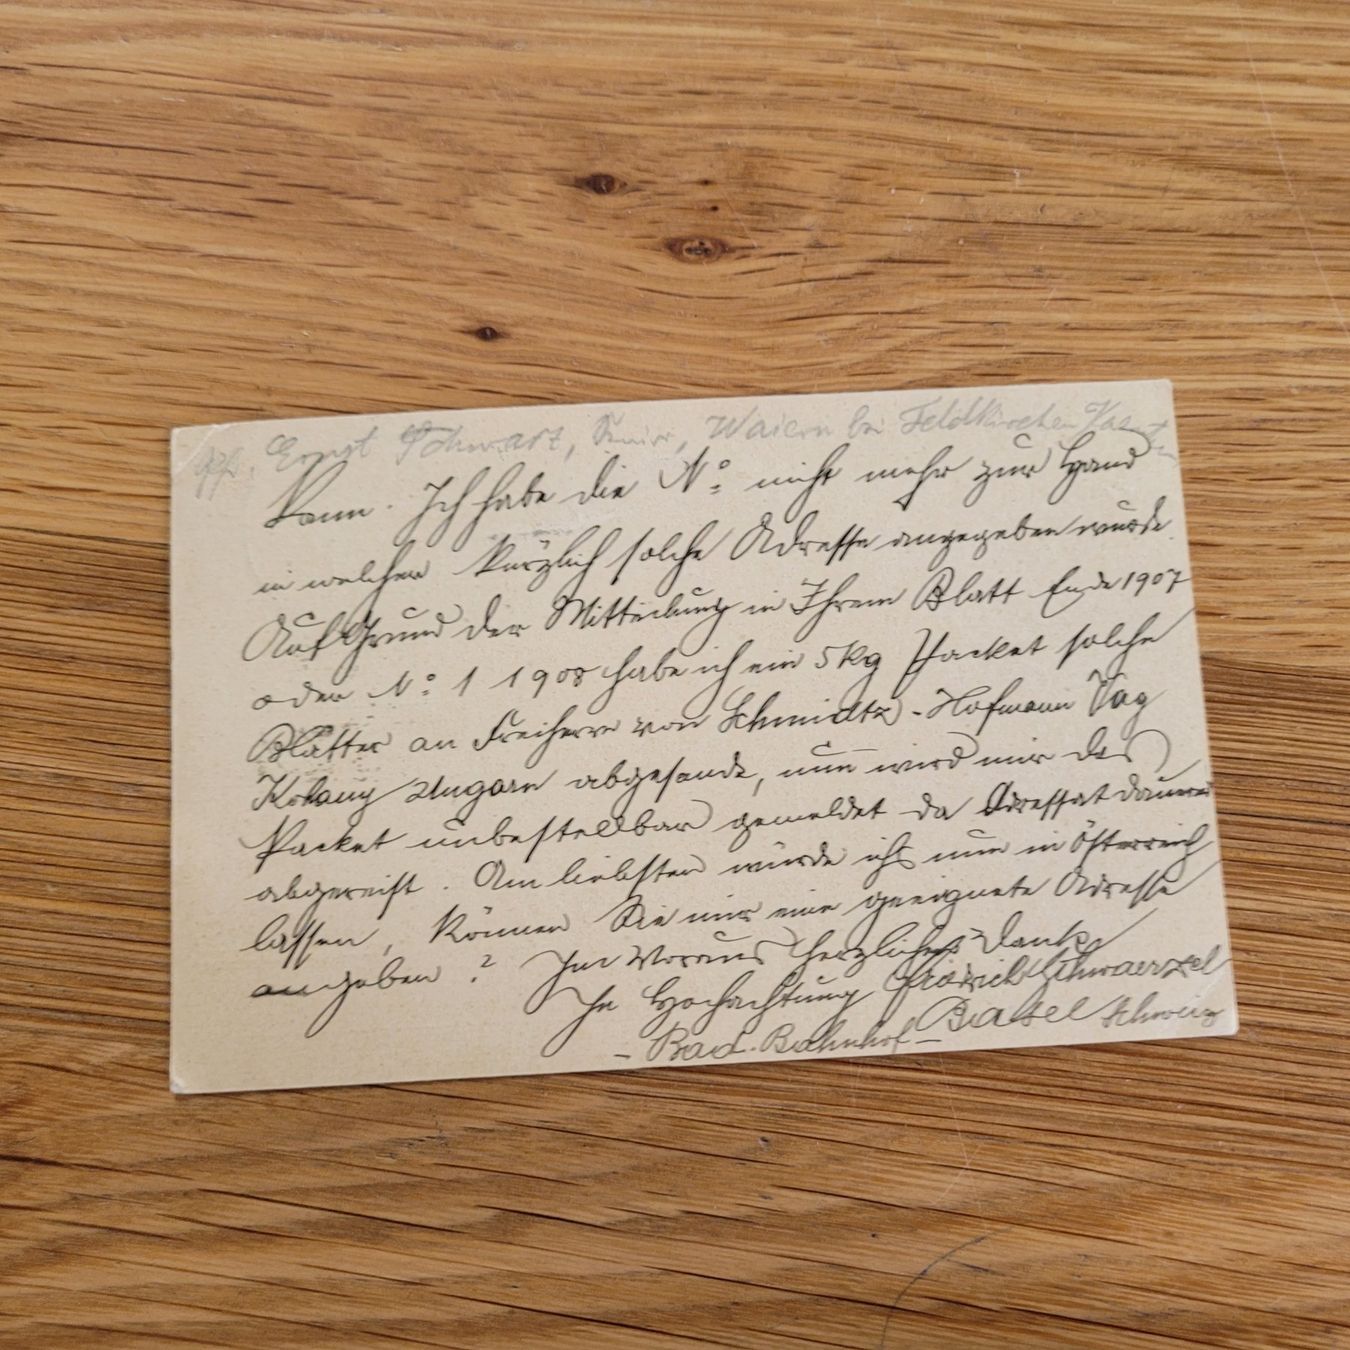 Ernst Schwarz, Senior, Waiern bei Feldkirchen
kann. Ich habe die No. nicht mehr zur Hand
in welcher kürzlich solche Adresse angegeben wurde.
Auf Grund der Mitteilung in Ihrem Blatt Ende 1907
oder No. 1 1908 habe ich ein 5 kg Packet solche
Blätter an Freiherrn von Schmidtz-Hofmann Vag
Ungarn abgesandt, nun wird mir das
Packet unbestellbar gemeldet da Adressat dauernd
abgereist. Am liebsten würde ichs nun in Österreich
lassen, können Sie mir eine geeignete Adresse
angeben? Im Voraus herzlichen Dank
In Hochachtung Friedrich Schwaerzel
- Bad. Bahnhof - Basel Schweiz